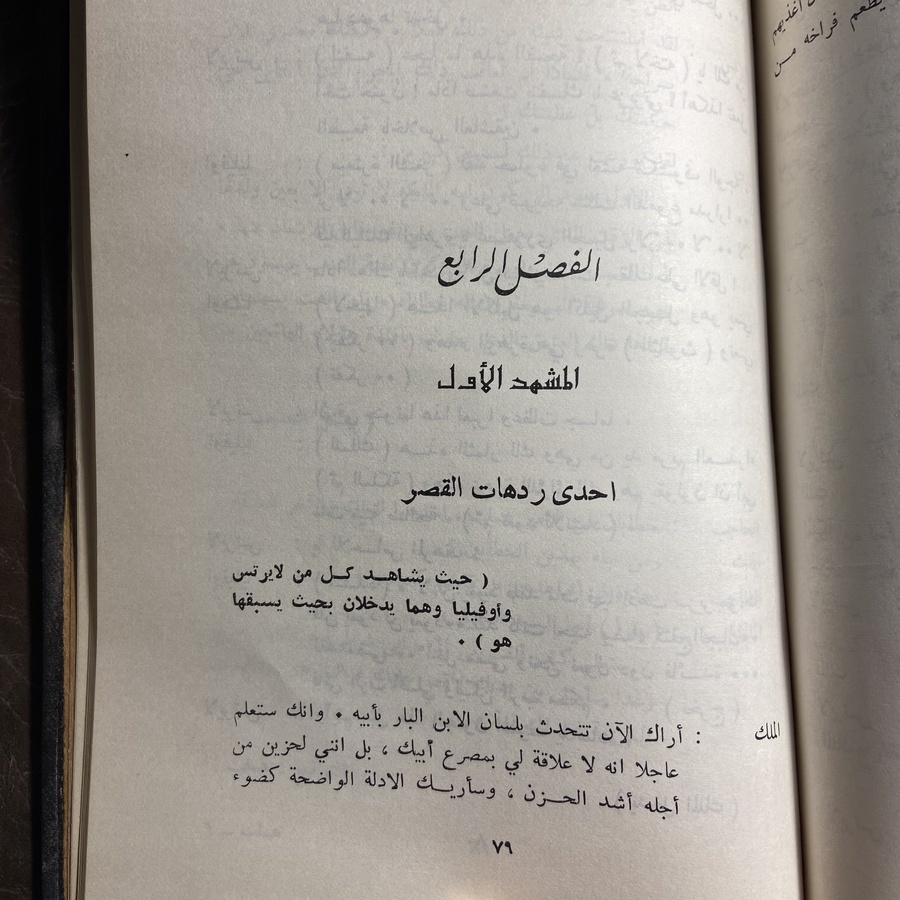 الفصل الرابع
المشهد الأول
احدى ردهات القصر
( حيث يشاهــد كــل من لايرتس
وأوفيليا وهما يدخلان بحيث يسبقها
هو ) ٠
الملك : أراك الآن تتحدث بلسان الابن البار بأبيه ٠ وانك ستعلم
عاجلا انه لا علاقة لي بمصرع أبيك ، بل انني لحزين من
أجله أشد الحــزن ، وسأريــك الادلة الواضحة كضوء
٧٩
أغذيهم
يطعم فراخه مــن